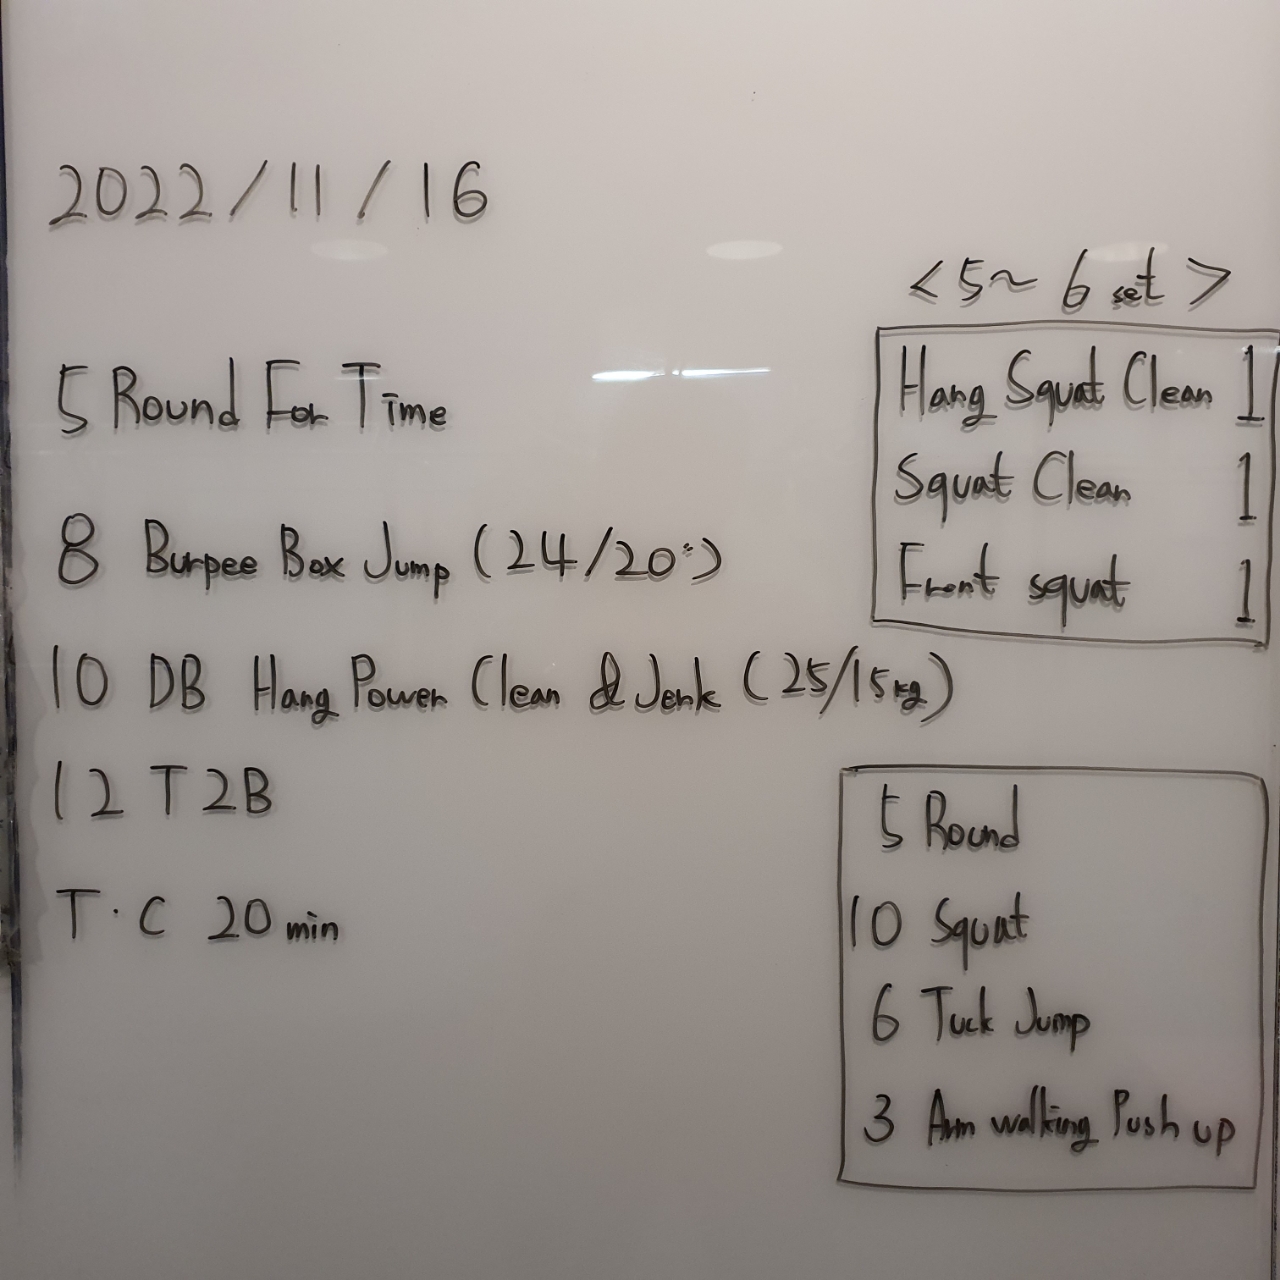 2022/11/16
5 Round For Time
8 Burpee Box Jump (24/20")
10 DB Hang Power Clean & Jerk (25/15kg)
12 T2B
T.C 20 min
<5~6 set>
Hang Squat Clean 1
Squat Clean 1
Front squat 1
5 Round
10 Squat
6 Tuck Jump
3 Arm walking Push up